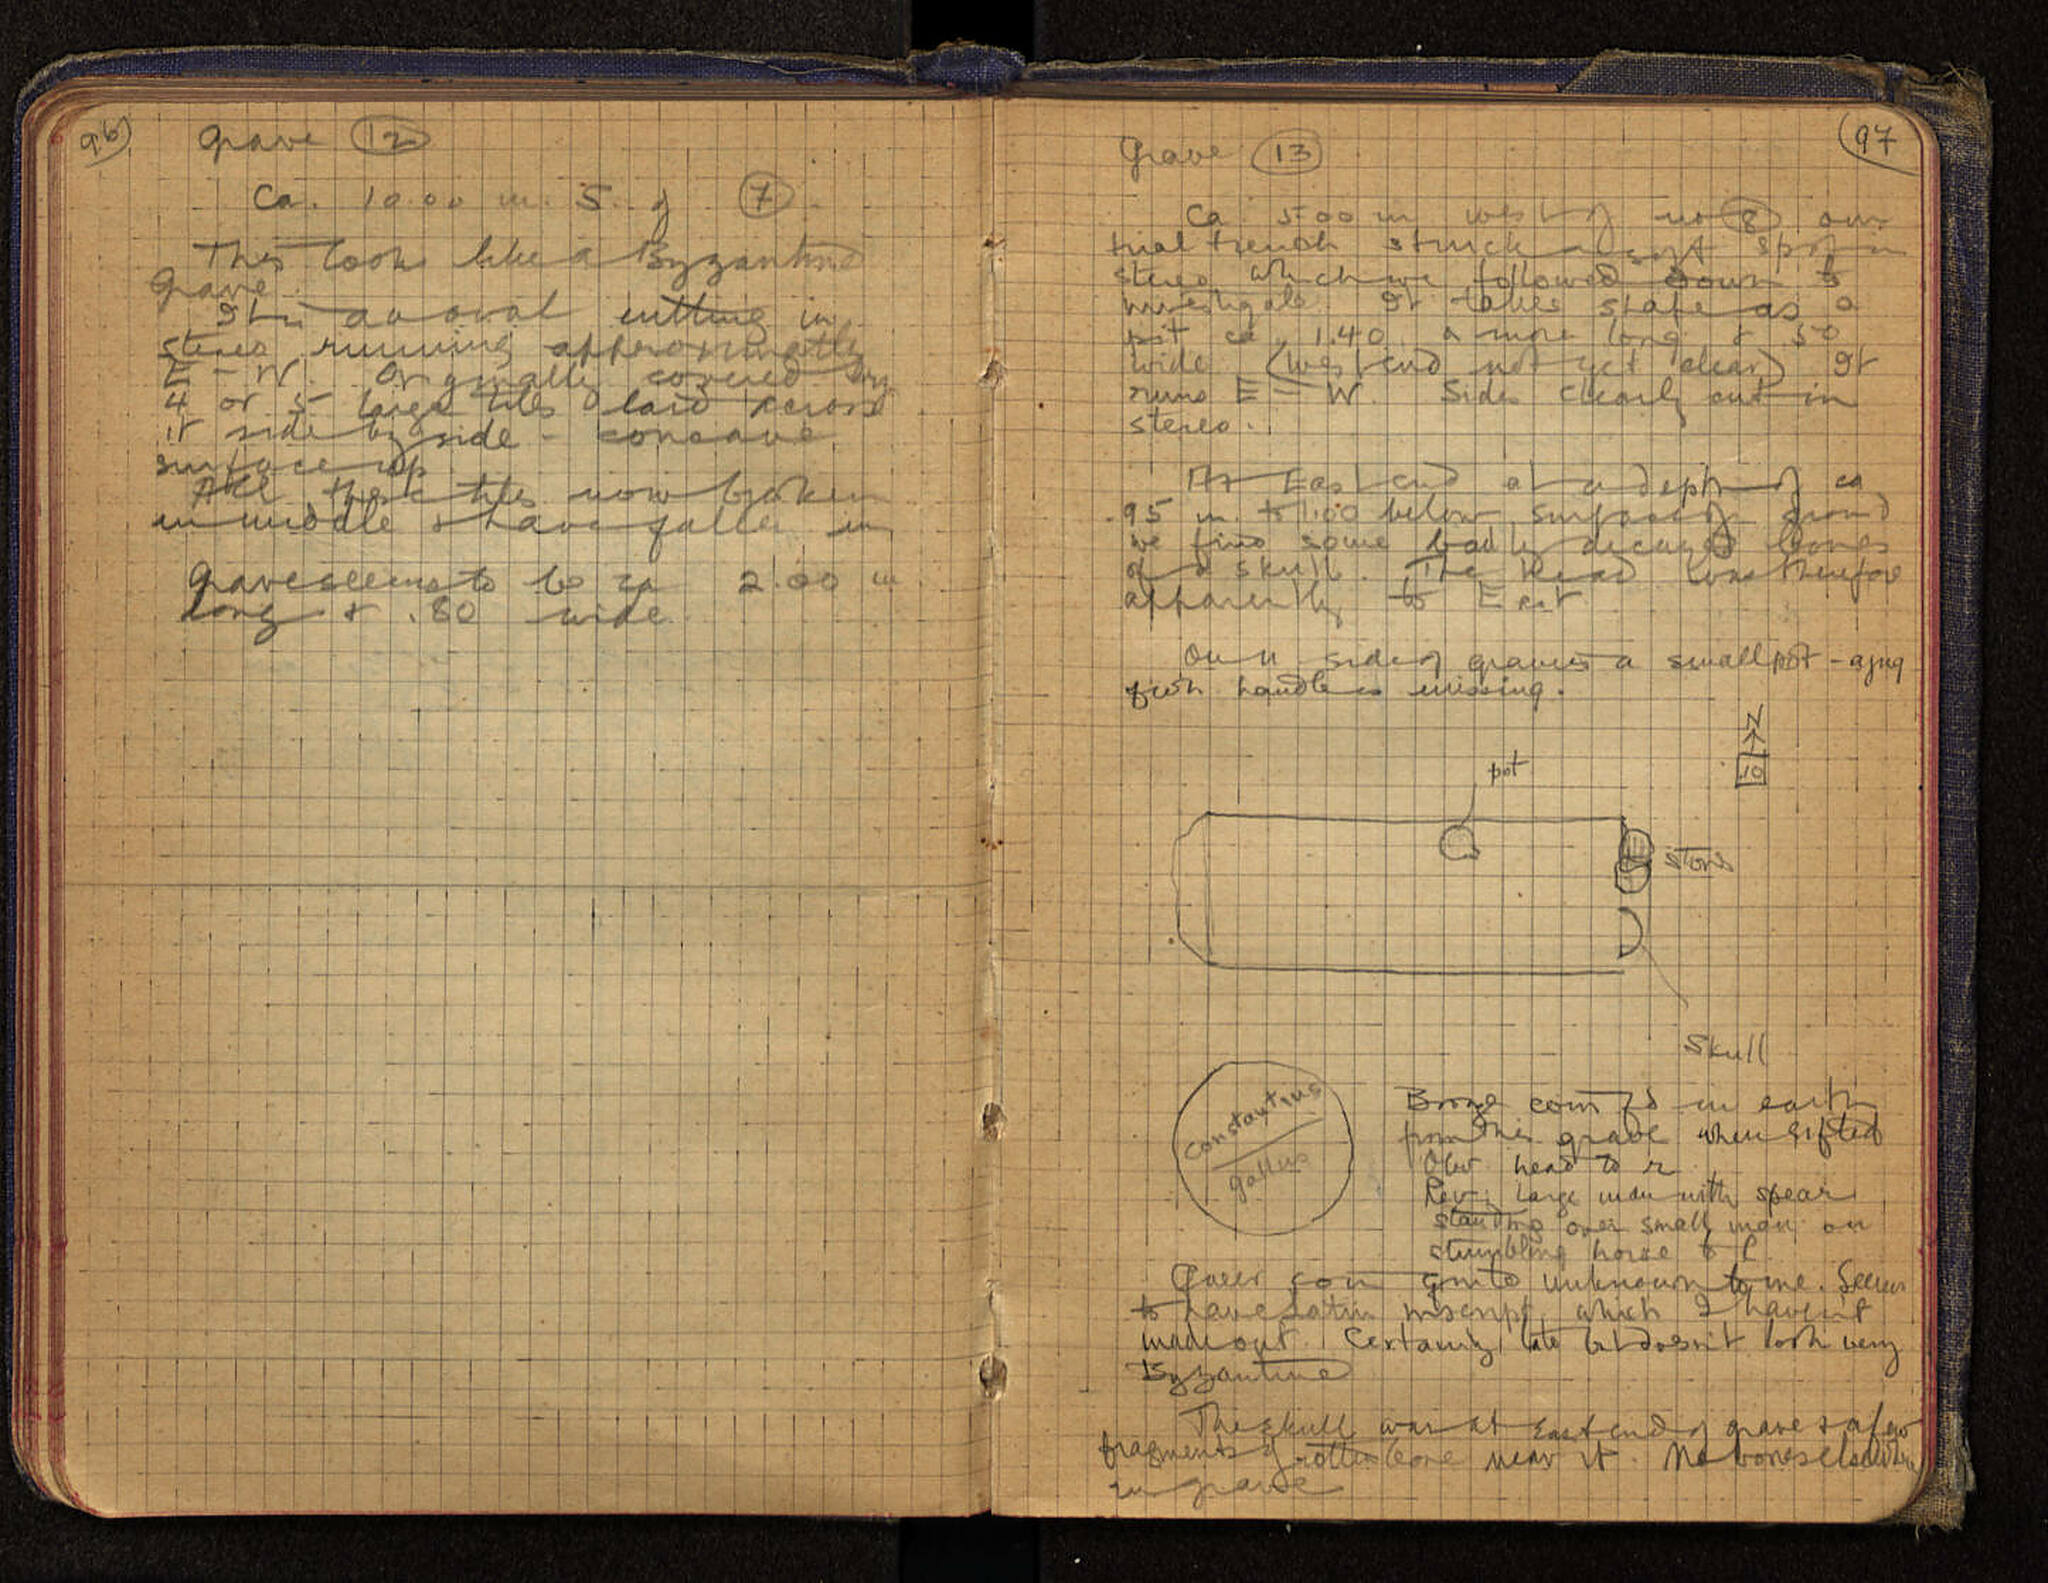 96
Grave 12
Ca. 10.00 m. S. of 7.
This looks like a Byzantine
grave.
It is an oval cutting in
stereo running approximately
E – W. Originally covered by
4 or 5 large tiles laid across
it side by side – concave
surface up
All these tiles now broken
in middle & have fallen in
Grave seems to be ca 2.00 m
long & .80 wide
97
Grave 13
Ca 5.00 m west of no 8 our
trial trench struck a soft spot in
stereo which we followed down to
investigate. It takes shape as a
pit ca. 1.40 or more long & 50
wide (West end not yet clear) It
runs E – W. Sides clearly cut in
stereo.
At East end at a depth of ca
.95 m. to 1.00 below surface of ground
we find some badly decayed bones
of a skull. The head was therefore
apparently to East
On N side of grave is a small pot – a jug
which handle is missing.
N
.10
pot
stone
Skull
Constantius
Gallus
Bronze coin fd in earth
from this grave when sifted
Obv. head to r
Rev: Large man with spear
standing over small man on
stumbling horse to l
Queer coin quite unknown to me. Seems
to have Latin inscript. which I haven't
made out. Certainly late but doesn't look very
Byzantine
The skull was at East end of grave & a few
fragments of rotten bone near it. No bones elsewhere
in grave